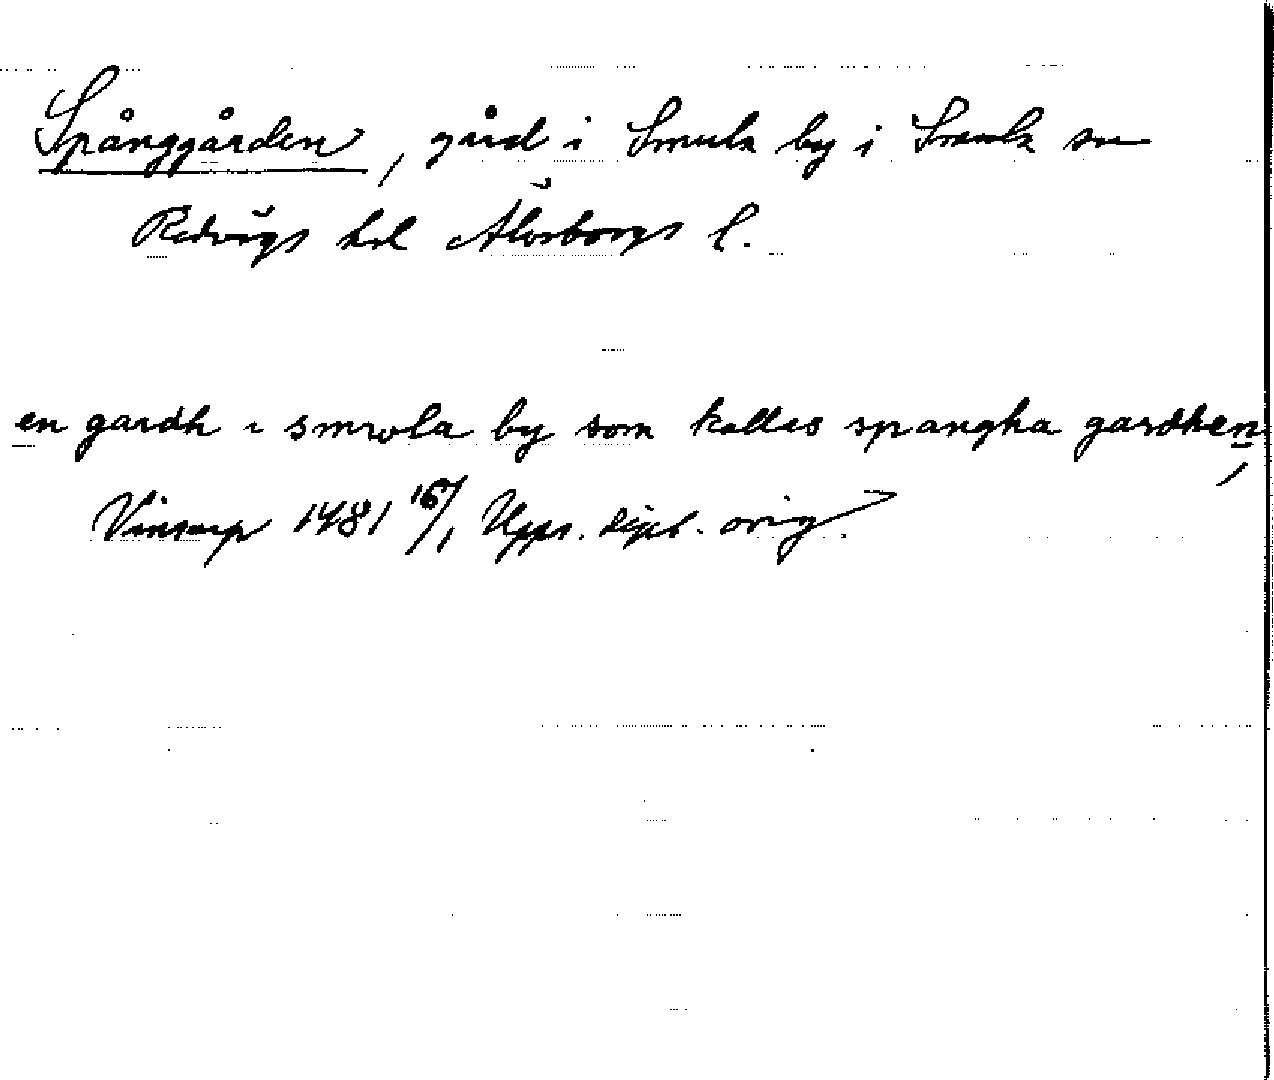 Spånggården, gård i Smula by i Smula sn
Redvägs hd Älvsborgs l.
en gardh i smwla by som kallas spangha gardhen,
Vinsarp 1481 16/1, Upps. dipl. orig.